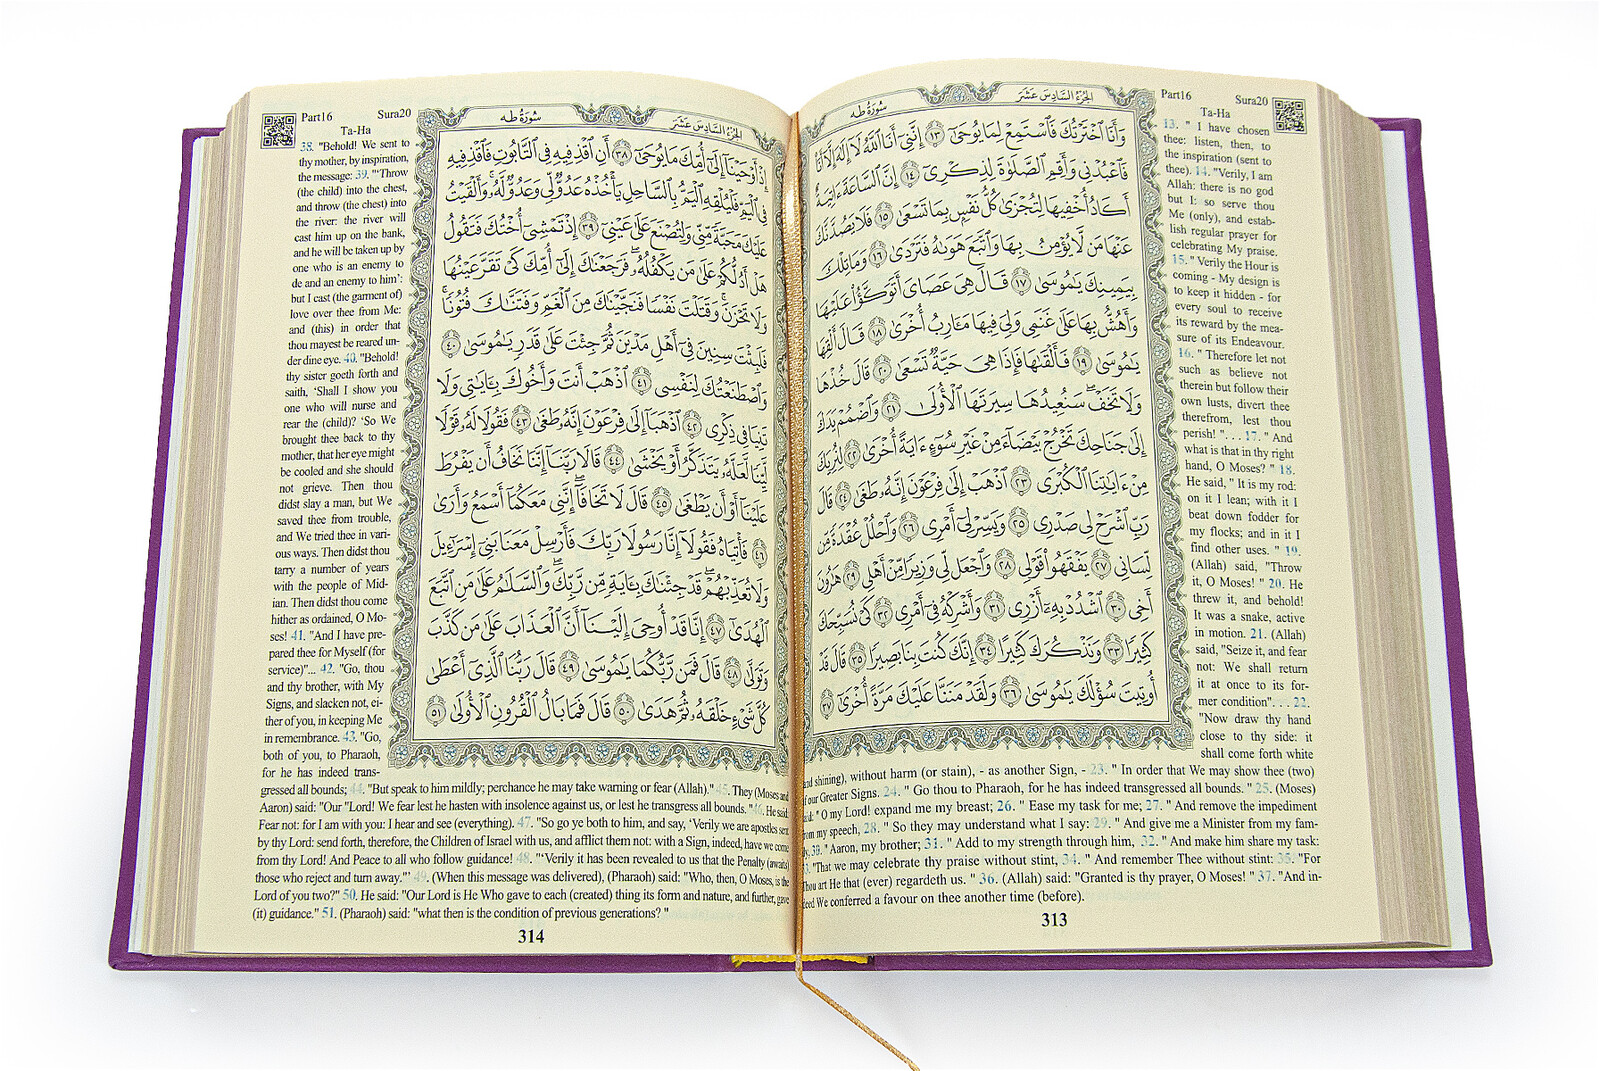 الجزء السادس عشر
سورة طه
وَأَنَا ٱخْتَرْتُكَ فَٱسْتَمِعْ لِمَا يُوحَىٰٓ ١٣ إِنَّنِىٓ أَنَا ٱللَّهُ لَآ إِلَٰهَ إِلَّآ أَنَا۠
فَٱعْبُدْنِى وَأَقِمِ ٱلصَّلَوٰةَ لِذِكْرِىٓ ١٤ إِنَّ ٱلسَّاعَةَ ءَاتِيَةٌ
أَكَادُ أُخْفِيهَا لِتُجْزَىٰ كُلُّ نَفْسٍۭ بِمَا تَسْعَىٰ ١٥ فَلَا يَصُدَّنَّكَ
عَنْهَا مَن لَّا يُؤْمِنُ بِهَا وَٱتَّبَعَ هَوَىٰهُ فَتَرْدَىٰ ١٦ وَمَا تِلْكَ
بِيَمِينِكَ يَٰمُوسَىٰ ١٧ قَالَ هِىَ عَصَاىَ أَتَوَكَّؤُا۟ عَلَيْهَا
وَأَهُشُّ بِهَا عَلَىٰ غَنَمِى وَلِىَ فِيهَا مَـَٔارِبُ أُخْرَىٰ ١٨ قَالَ أَلْقِهَا
يَٰمُوسَىٰ ١٩ فَأَلْقَىٰهَا فَإِذَا هِىَ حَيَّةٌ تَسْعَىٰ ٢٠ قَالَ خُذْهَا
وَلَا تَخَفْ سَنُعِيدُهَا سِيرَتَهَا ٱلْأُولَىٰ ٢١ وَٱضْمُمْ يَدَكَ
إِلَىٰ جَنَاحِكَ تَخْرُجْ بَيْضَآءَ مِنْ غَيْرِ سُوٓءٍ ءَايَةً أُخْرَىٰ ٢٢ لِنُرِيَكَ
مِنْ ءَايَٰتِنَا ٱلْكُبْرَى ٢٣ ٱذْهَبْ إِلَىٰ فِرْعَوْنَ إِنَّهُۥ طَغَىٰ ٢٤ قَالَ
رَبِّ ٱشْرَحْ لِى صَدْرِى ٢٥ وَيَسِّرْ لِىٓ أَمْرِى ٢٦ وَٱحْلُلْ عُقْدَةً مِّن
لِّسَانِى ٢٧ يَفْقَهُوا۟ قَوْلِى ٢٨ وَٱجْعَل لِّى وَزِيرًا مِّنْ أَهْلِى ٢٩ هَٰرُونَ
أَخِى ٣٠ ٱشْدُدْ بِهِۦٓ أَزْرِى ٣١ وَأَشْرِكْهُ فِىٓ أَمْرِى ٣٢ كَىْ نُسَبِّحَكَ
كَثِيرًا ٣٣ وَنَذْكُرَكَ كَثِيرًا ٣٤ إِنَّكَ كُنتَ بِنَا بَصِيرًا ٣٥ قَالَ قَدْ
أُوتِيتَ سُؤْلَكَ يَٰمُوسَىٰ ٣٦ وَلَقَدْ مَنَنَّا عَلَيْكَ مَرَّةً أُخْرَىٰٓ ٣٧
Part16 Sura20
Ta-Ha
13. " I have chosen
thee: listen, then, to
the inspiration (sent to
thee). 14. "Verily, I am
Allah: there is no god
but I: so serve thou
Me (only), and estab-
lish regular prayer for
celebrating My praise.
15. " Verily the Hour is
coming - My design is
to keep it hidden - for
every soul to receive
its reward by the mea-
sure of its Endeavour.
16. " Therefore let not
such as believe not
therein but follow their
own lusts, divert thee
therefrom, lest thou
perish! ". . . 17. " And
what is that in thy right
hand, O Moses? " 18.
He said, " It is my rod:
on it I lean; with it I
beat down fodder for
my flocks; and in it I
find other uses. " 19.
(Allah) said, "Throw
it, O Moses! " 20. He
threw it, and behold!
It was a snake, active
in motion. 21. (Allah)
said, "Seize it, and fear
not: We shall return
it at once to its for-
mer condition". . . 22.
"Now draw thy hand
close to thy side: it
shall come forth white
and shining), without harm (or stain), - as another Sign, - 23. " In order that We may show thee (two)
of our Greater Signs. 24. " Go thou to Pharaoh, for he has indeed transgressed all bounds. " 25. (Moses)
said: " O my Lord! expand me my breast; 26. " Ease my task for me; 27. " And remove the impediment
from my speech, 28. " So they may understand what I say: 29. " And give me a Minister from my fam-
ly, 30. " Aaron, my brother; 31. " Add to my strength through him, 32. " And make him share my task:
3. "That we may celebrate thy praise without stint, 34. " And remember Thee without stint: 35. "For
Thou art He that (ever) regardeth us. " 36. (Allah) said: "Granted is thy prayer, O Moses! " 37. "And in-
deed We conferred a favour on thee another time (before).
313
Part16 Sura20
Ta-Ha
38. "Behold! We sent to
thy mother, by inspiration,
the message: 39. "'Throw
(the child) into the chest,
and throw (the chest) into
the river: the river will
cast him up on the bank,
and he will be taken up by
one who is an enemy to
de and an enemy to him':
but I cast (the garment of)
love over thee from Me:
and (this) in order that
thou mayest be reared un-
der dine eye. 40. "Behold!
thy sister goeth forth and
saith, 'Shall I show you
one who will nurse and
rear the (child)? 'So We
brought thee back to thy
mother, that her eye might
be cooled and she should
not grieve. Then thou
didst slay a man, but We
saved thee from trouble,
and We tried thee in vari-
ous ways. Then didst thou
tarry a number of years
with the people of Mid-
ian. Then didst thou come
hither as ordained, O Mo-
ses! 41. "And I have pre-
pared thee for Myself (for
service)"... 42. "Go, thou
and thy brother, with My
Signs, and slacken not, ei-
ther of you, in keeping Me
in remembrance. 43. "Go,
both of you, to Pharaoh,
for he has indeed trans-
gressed all bounds; 44. "But speak to him mildly; perchance he may take warning or fear (Allah)." 45. They (Moses and
Aaron) said: "Our "Lord! We fear lest he hasten with insolence against us, or lest he transgress all bounds. "46. He said:
Fear not: for I am with you: I hear and see (everything). 47. "So go ye both to him, and say, 'Verily we are apostles sent
by thy Lord: send forth, therefore, the Children of Israel with us, and afflict them not: with a Sign, indeed, have we come
from thy Lord! And Peace to all who follow guidance! 48. "'Verily it has been revealed to us that the Penalty (awaits)
those who reject and turn away.'" 49. (When this message was delivered), (Pharaoh) said: "Who, then, O Moses, is the
Lord of you two?" 50. He said: "Our Lord is He Who gave to each (created) thing its form and nature, and further, gave
(it) guidance." 51. (Pharaoh) said: "what then is the condition of previous generations? "
314
الجزء السادس عشر
سورة طه
إِذْ أَوْحَيْنَآ إِلَىٰٓ أُمِّكَ مَا يُوحَىٰٓ ٣٨ أَنِ ٱقْذِفِيهِ فِى ٱلتَّابُوتِ فَٱقْذِفِيهِ
فِى ٱلْيَمِّ فَلْيُلْقِهِ ٱلْيَمُّ بِٱلسَّاحِلِ يَأْخُذْهُ عَدُوٌّ لِّى وَعَدُوٌّ لَّهُۥ وَأَلْقَيْتُ
عَلَيْكَ مَحَبَّةً مِّنِّى وَلِتُصْنَعَ عَلَىٰ عَيْنِىٓ ٣٩ إِذْ تَمْشِىٓ أُخْتُكَ فَتَقُولُ
هَلْ أَدُلُّكُمْ عَلَىٰ مَن يَكْفُلُهُۥ فَرَجَعْنَٰكَ إِلَىٰٓ أُمِّكَ كَىْ تَقَرَّ عَيْنُهَا
وَلَا تَحْزَنَ وَقَتَلْتَ نَفْسًا فَنَجَّيْنَٰكَ مِنَ ٱلْغَمِّ وَفَتَنَّٰكَ فُتُونًا
فَلَبِثْتَ سِنِينَ فِىٓ أَهْلِ مَدْيَنَ ثُمَّ جِئْتَ عَلَىٰ قَدَرٍ يَٰمُوسَىٰ ٤٠
وَٱصْطَنَعْتُكَ لِنَفْسِى ٤١ ٱذْهَبْ أَنتَ وَأَخُوكَ بِـَٔايَٰتِى وَلَا
تَنِيَا فِى ذِكْرِى ٤٢ ٱذْهَبَآ إِلَىٰ فِرْعَوْنَ إِنَّهُۥ طَغَىٰ ٤٣ فَقُولَا لَهُۥ قَوْلًا
لَّيِّنًا لَّعَلَّهُۥ يَتَذَكَّرُ أَوْ يَخْشَىٰ ٤٤ قَالَا رَبَّنَآ إِنَّنَا نَخَافُ أَن يَفْرُطَ
عَلَيْنَآ أَوْ أَن يَطْغَىٰ ٤٥ قَالَ لَا تَخَافَآ إِنَّنِى مَعَكُمَآ أَسْمَعُ وَأَرَىٰ
٤٦ فَأْتِيَاهُ فَقُولَآ إِنَّا رَسُولَا رَبِّكَ فَأَرْسِلْ مَعَنَا بَنِىٓ إِسْرَٰٓءِيلَ
وَلَا تُعَذِّبْهُمْ قَدْ جِئْنَٰكَ بِـَٔايَةٍ مِّن رَّبِّكَ وَٱلسَّلَٰمُ عَلَىٰ مَنِ ٱتَّبَعَ
ٱلْهُدَىٰٓ ٤٧ إِنَّا قَدْ أُوحِىَ إِلَيْنَآ أَنَّ ٱلْعَذَابَ عَلَىٰ مَن كَذَّبَ
وَتَوَلَّىٰ ٤٨ قَالَ فَمَن رَّبُّكُمَا يَٰمُوسَىٰ ٤٩ قَالَ رَبُّنَا ٱلَّذِىٓ أَعْطَىٰ
كُلَّ شَىْءٍ خَلْقَهُۥ ثُمَّ هَدَىٰ ٥٠ قَالَ فَمَا بَالُ ٱلْقُرُونِ ٱلْأُولَىٰ ٥١